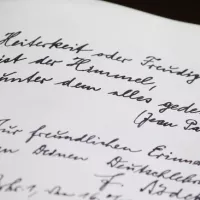 Heiterkeit oder Freudig
ist der Himmel,
unter dem alles gede
(Jean Pa
Zur freundlichen Erinne
an Deinen Deutschlehre
F. Böde